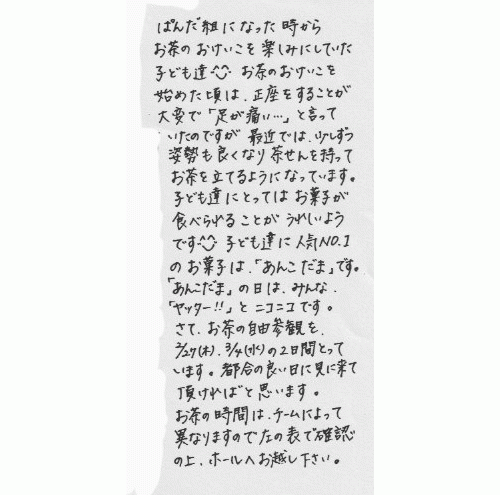 ぱんだ組になった時から
お茶のおけいこを楽しみにしていた
子ども達^^ お茶のおけいこを
始めた頃は、正座をすることが
大変で「足が痛い…」と言って
いたのですが 最近では、少しずつ
姿勢も良くなり茶せんを持って
お茶を立てるようになっています。
子ども達にとってはお菓子が
食べられることがうれしいよう
です^^ 子ども達に人気NO.1
のお菓子は、「あんこだま」です。
「あんこだま」の日は、みんな、
「ヤッター!!」とニコニコです。
さて、お茶の自由参観を、
2/27(木)、3/4(水)の2日間とって
います。都合の良い日に見に来て
頂ければと思います。
お茶の時間は、チームによって
異なりますので左の表で確認
の上、ホールへお越し下さい。